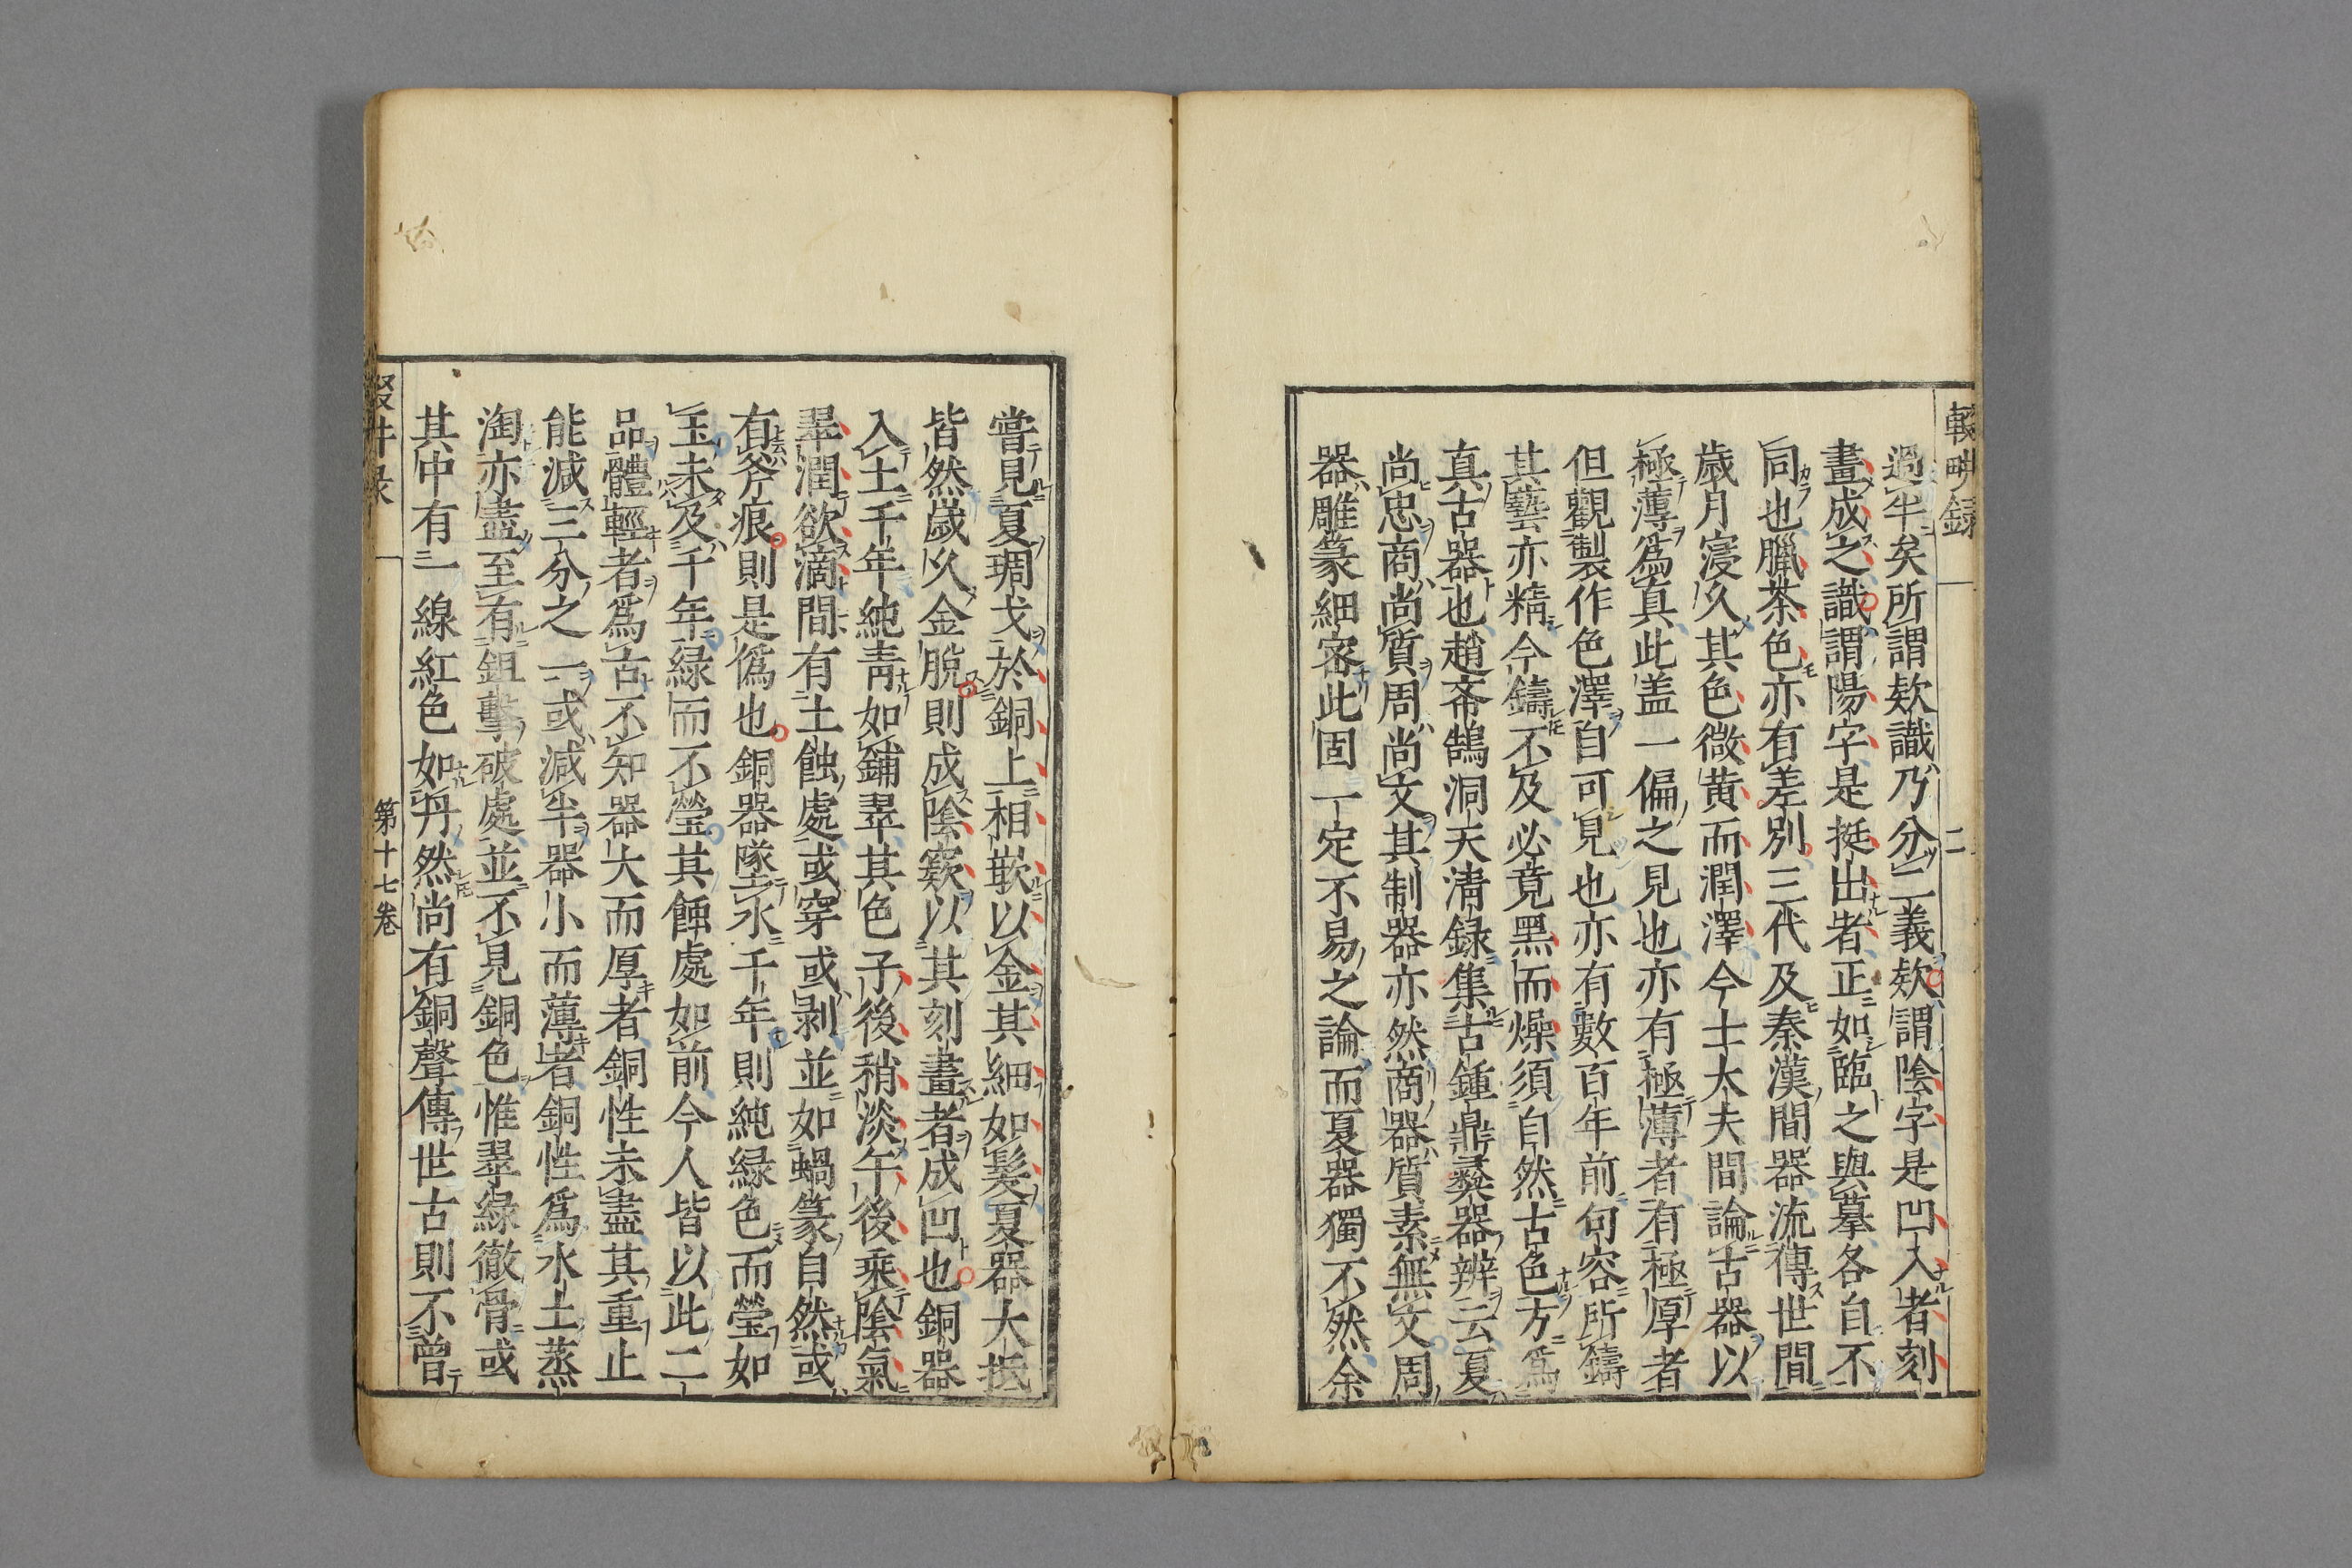 輟畊録
二
過半矣所謂欵識乃分二義欵謂陰字是凹入者刻
畫成之識謂陽字是挺出者正如臨之與摹各自不
同也臘茶色亦有差別三代及秦漢間器流傳世間
歲月寖久其色微黄而潤澤今士大夫間論古器以
極薄爲真此盖一偏之見也亦有極薄者有極厚者
但觀製作色澤自可見也亦有數百年前句容所鑄
其藝亦精今鑄不及必竟黑而燥須自然古色方爲
真古器也趙希鵠洞天清録集古鍾鼎彝器辨云夏
尚忠商尚質周尚文其制器亦然商器質素無文周
器雕篆細密此固一定不易之論而夏器獨不然余
嘗見夏琱戈於銅上相嵌以金其細如髮夏器大抵
皆然歲久金脱則成陰欵以其刻畫者成凹也銅器
入土千年純靑如鋪翠其色子後稍淡午後乘陰氣
翠潤欲滴間有土蝕處或穿或剥並如蝸篆自然或
有斧痕則是僞也銅器墜水千年則純緑色而瑩如
玉未及千年緑而不瑩其蝕處如前今人皆以此二
品體輕者爲古不知器大而厚者銅性未盡其重止
能減三分之一或減半器小而薄者銅性爲水土蒸
淘亦盡至有鉏擊破處並不見銅色惟翠緑徹骨或
其中有一線紅色如丹然尚有銅聲傳世古則不曽
第十七卷